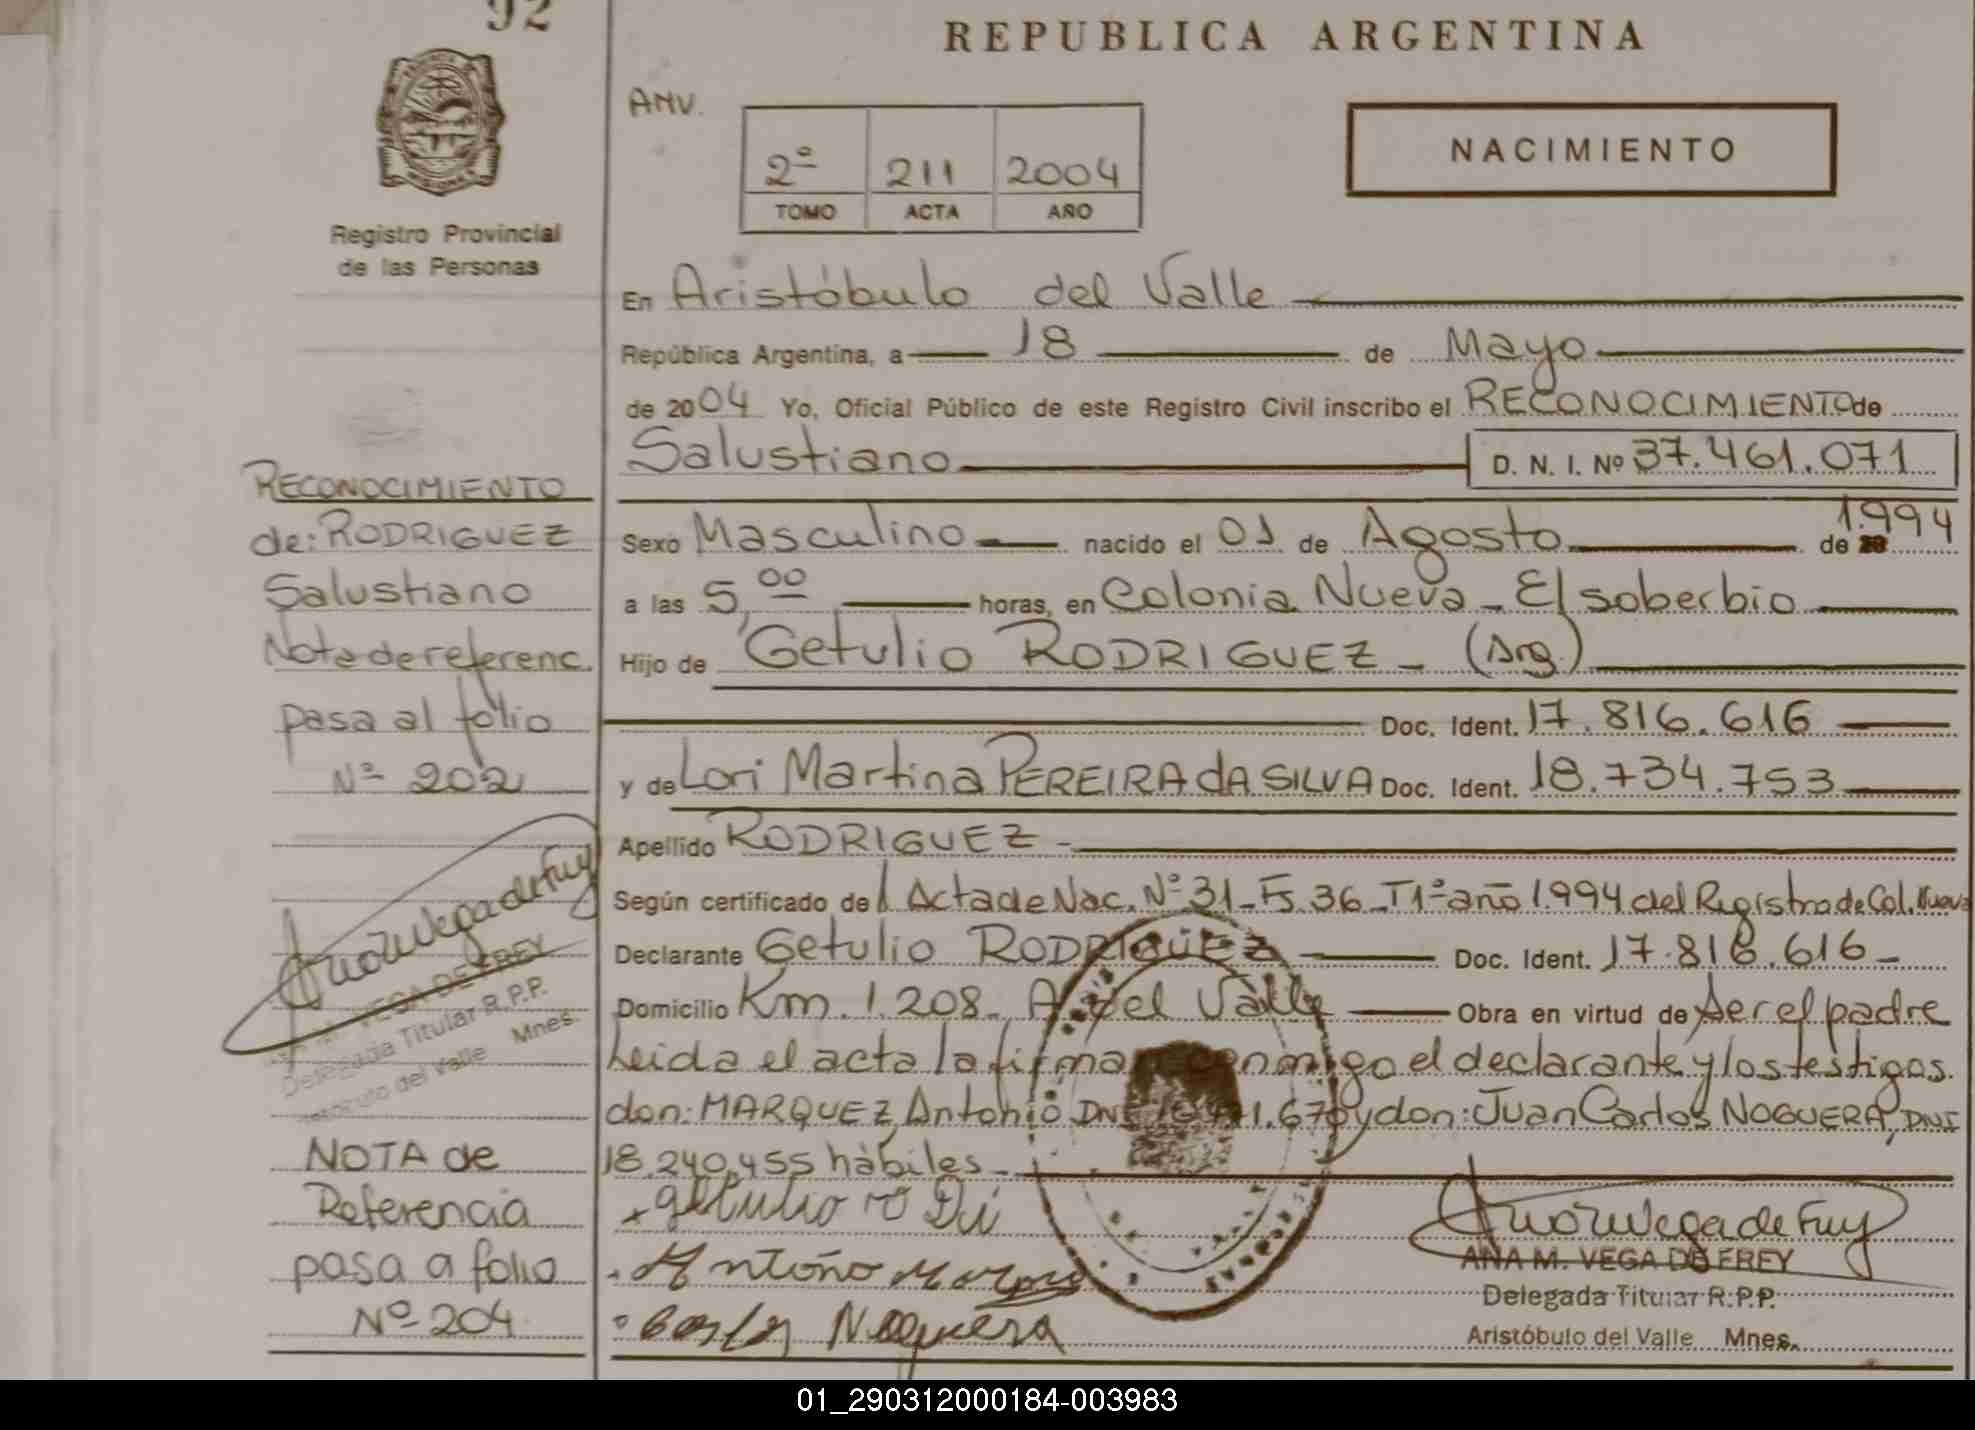 92
REPUBLICA ARGENTINA
Registro Provincial
de las Personas
AMV.
2º 211 2004
TOMO ACTA AÑO
NACIMIENTO
En Aristóbulo del Valle
República Argentina, a 18 de Mayo
de 2004 Yo, Oficial Público de este Registro Civil inscribo el RECONOCIMIENTO de
Salustiano D. N. I. Nº 37.461.071
Sexo Masculino nacido el 01 de Agosto de 1.994
a las 5,00 horas, en Colonia Nueva - El soberbio
Hijo de Getulio RODRIGUEZ - (Arg.)
Doc. Ident. 17.816.616
y de Lori Martina PEREIRA dA SILVA Doc. Ident. 18.734.753
Apellido RODRIGUEZ -
Según certificado de Acta de Nac. Nº 31 - F. 36 - T1º año 1.994 del Registro de Col. Nueva
Declarante Getulio RODRIGUEZ Doc. Ident. 17.816.616 -
Domicilio Km. 1.208 - A. del Valle Obra en virtud de ser el padre
Leida el acta la firman conmigo el declarante y los testigos.
don: MARQUEZ, Antonio DNI 1.670 y don: Juan Carlos NOGUERA, DNI
18.240.455 hábiles -
getulio ro Di
Antoño
Carlos Noguera
ANA M. VEGA DE FREY
Delegada Titular R.P.P.
Aristóbulo del Valle Mnes.
RECONOCIMIENTO
de: RODRIGUEZ
Salustiano
Nota de referenc.
pasa al folio
Nº 202
VEGA DE FREY
Delegada Titular R.P.P.
del Valle Mnes.
NOTA de
Referencia
pasa a folio
Nº 204
01_290312000184-003983